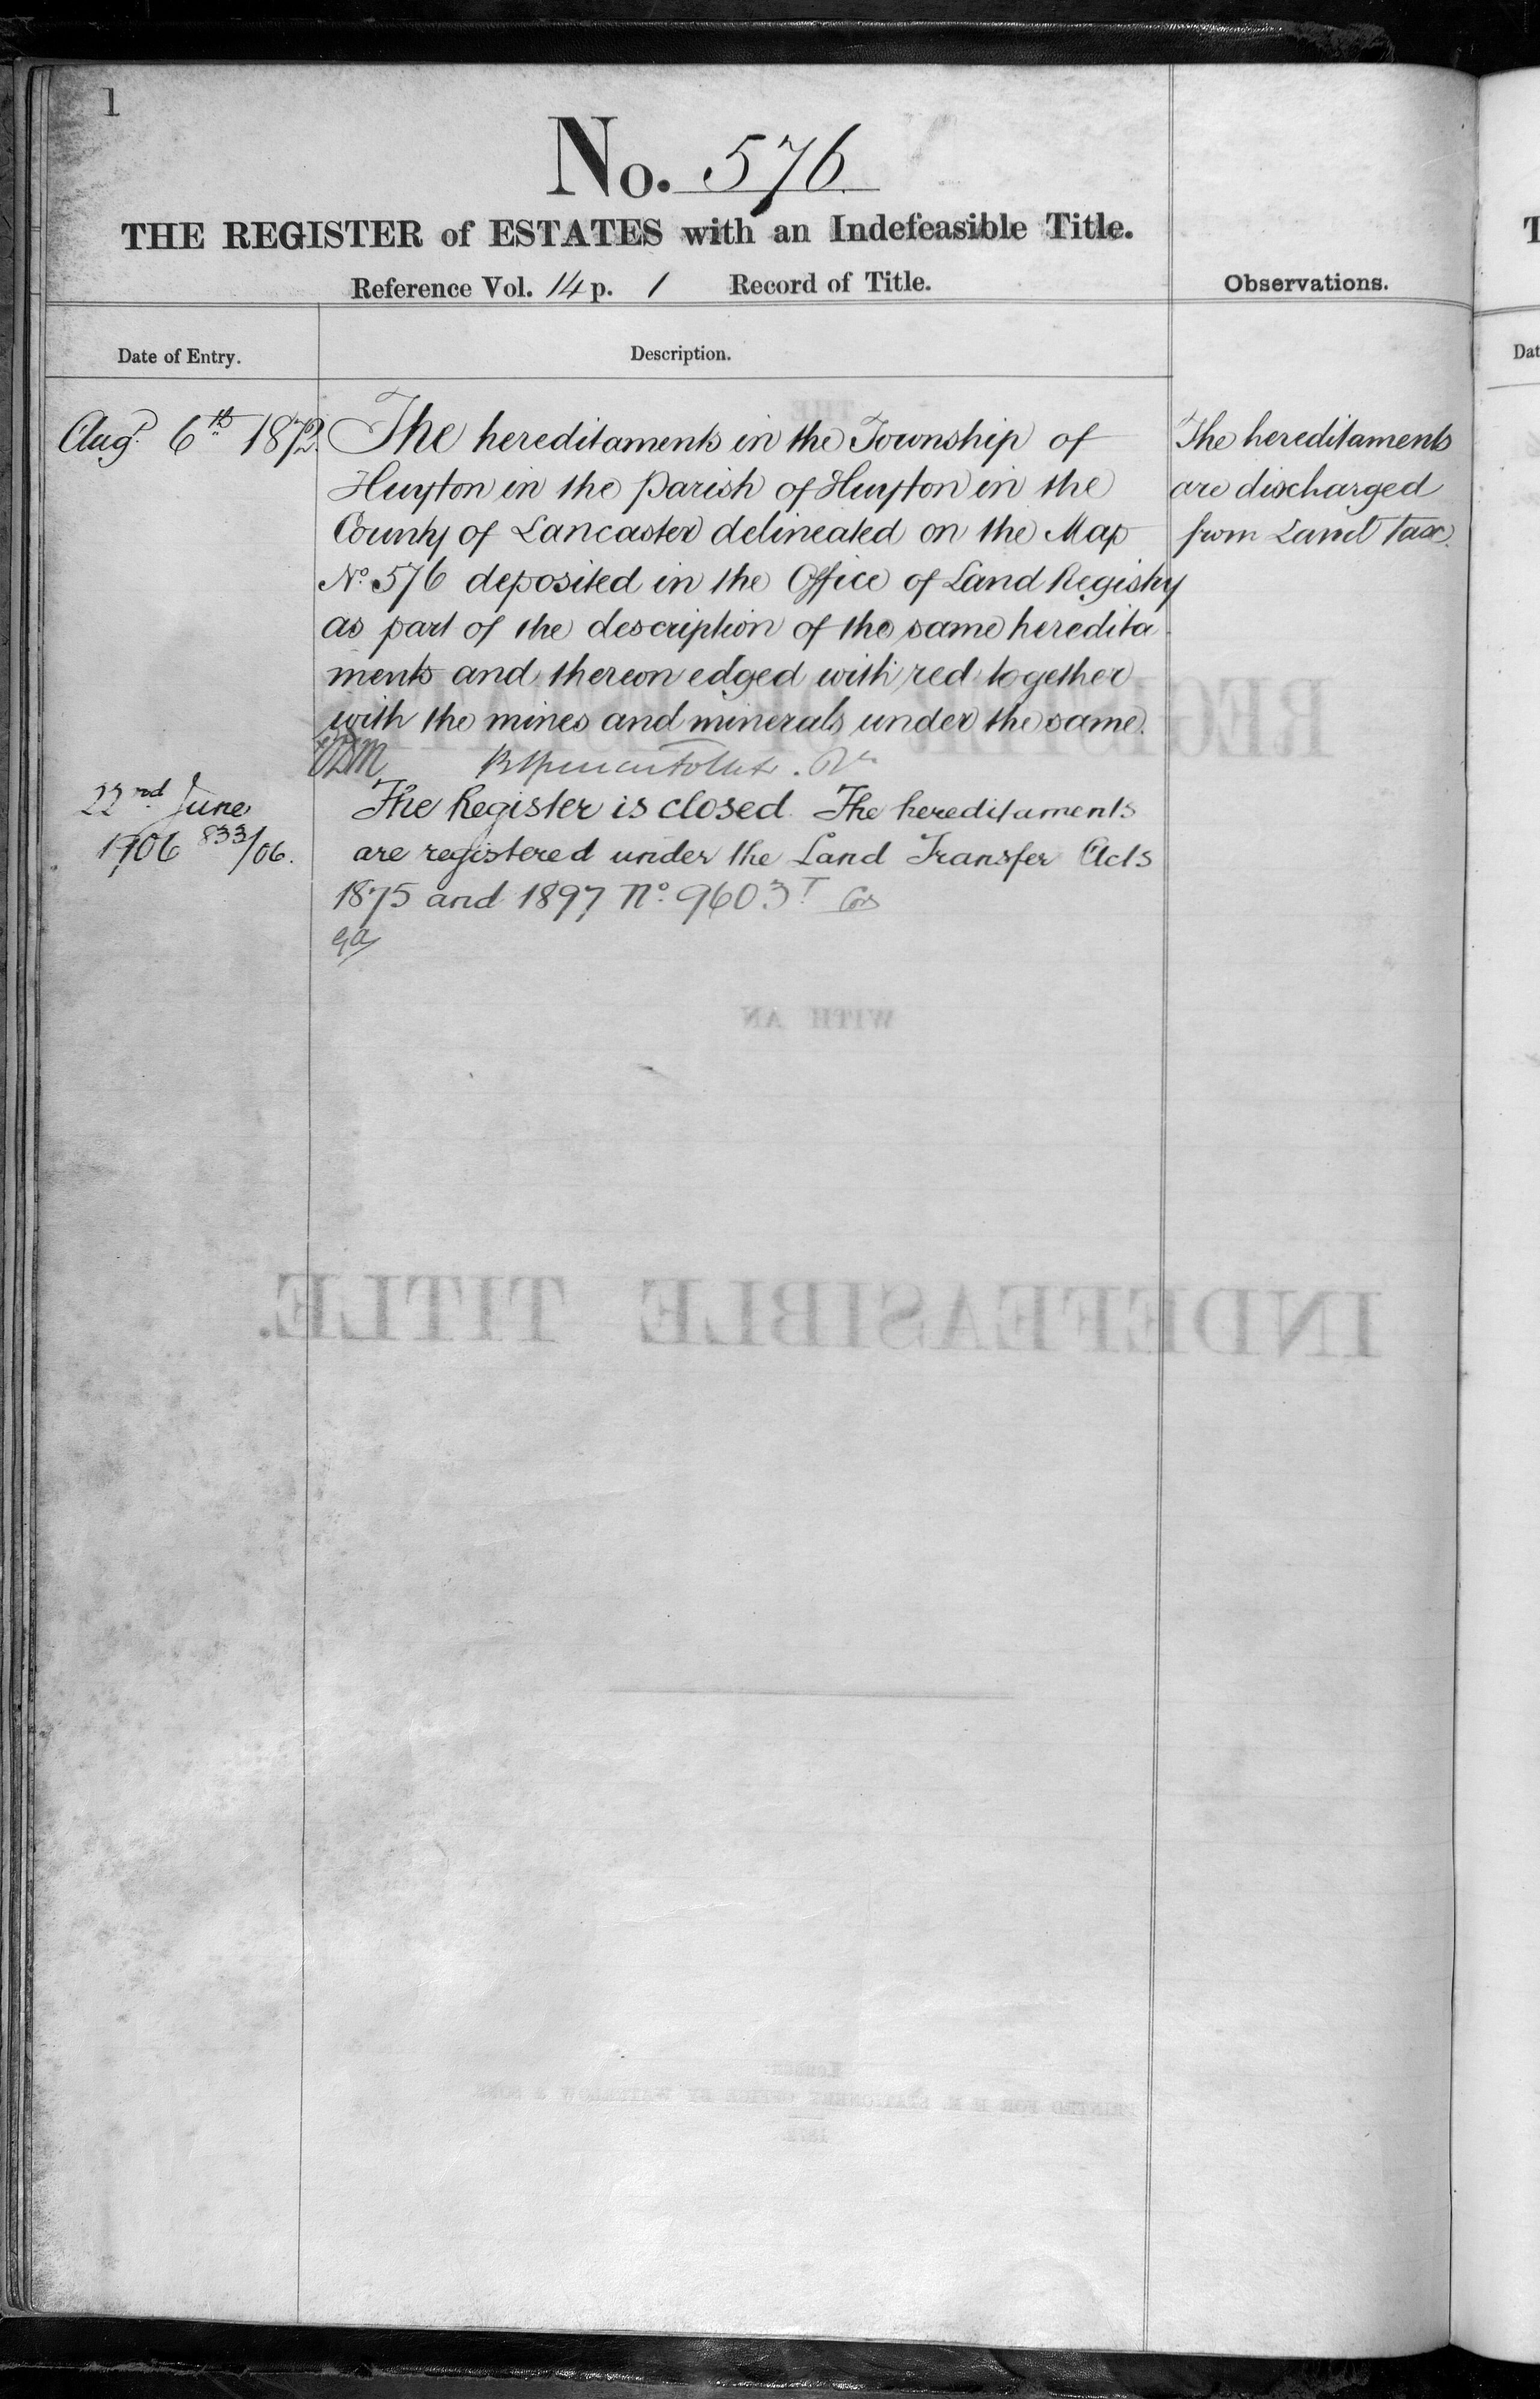 1
No. 576.
THE REGISTER of ESTATES with an Indefeasible Title.
Reference Vol. 14 p. 1 Record of Title.
Observations.
Date of Entry.
Description.
Augt. 6th 1872.
The hereditaments in the Township of
Huyton in the parish of Huyton in the
County of Lancaster delineated on the Map
No. 576 deposited in the Office of Land Registry
as part of the description of the same heredita
ments and thereon edged with red together
with the mines and minerals under the same.
The hereditaments
are discharged
from Land Tax.
22nd June
1906 833/06.
The Register is closed. The hereditaments
are registered under the Land Transfer Acts
1875 and 1897 No. 9603T
THE
REGISTER OF ESTATES
WITH AN
INDEFEASIBLE TITLE.
London:
PRINTED FOR H M STATIONERY OFFICE BY WATERLOW & SONS
1872.
T
Dat